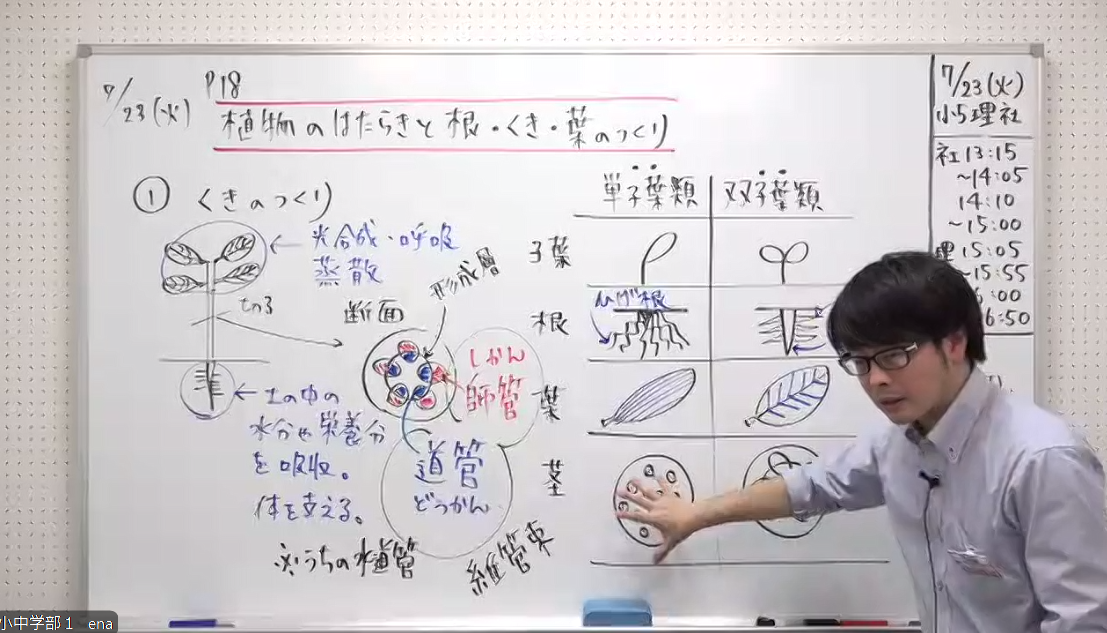 7/23(火)
P18
植物のはたらきと根・くき・葉のつくり
① くきのつくり
光合成・呼吸
蒸散
断面
形成層
しかん
師管
道管
どうかん
維管束
土の中の
水分や栄養分
を吸収。
体を支える。
※うちの水道管
単子葉類 双子葉類
子葉
根
ひげ根
葉
茎
7/23(火)
小5理社
社13:15
~14:05
14:10
~15:00
理15:05
~15:55
:00
6:50
小中学部1 ena